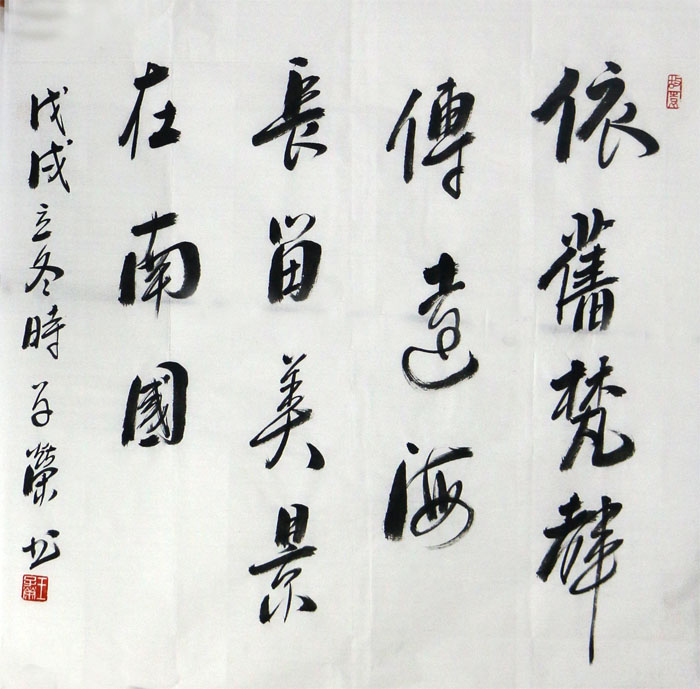 依舊梵聲
傳遠海
長留美景
在南國
戊戌立冬時子榮书
王子榮